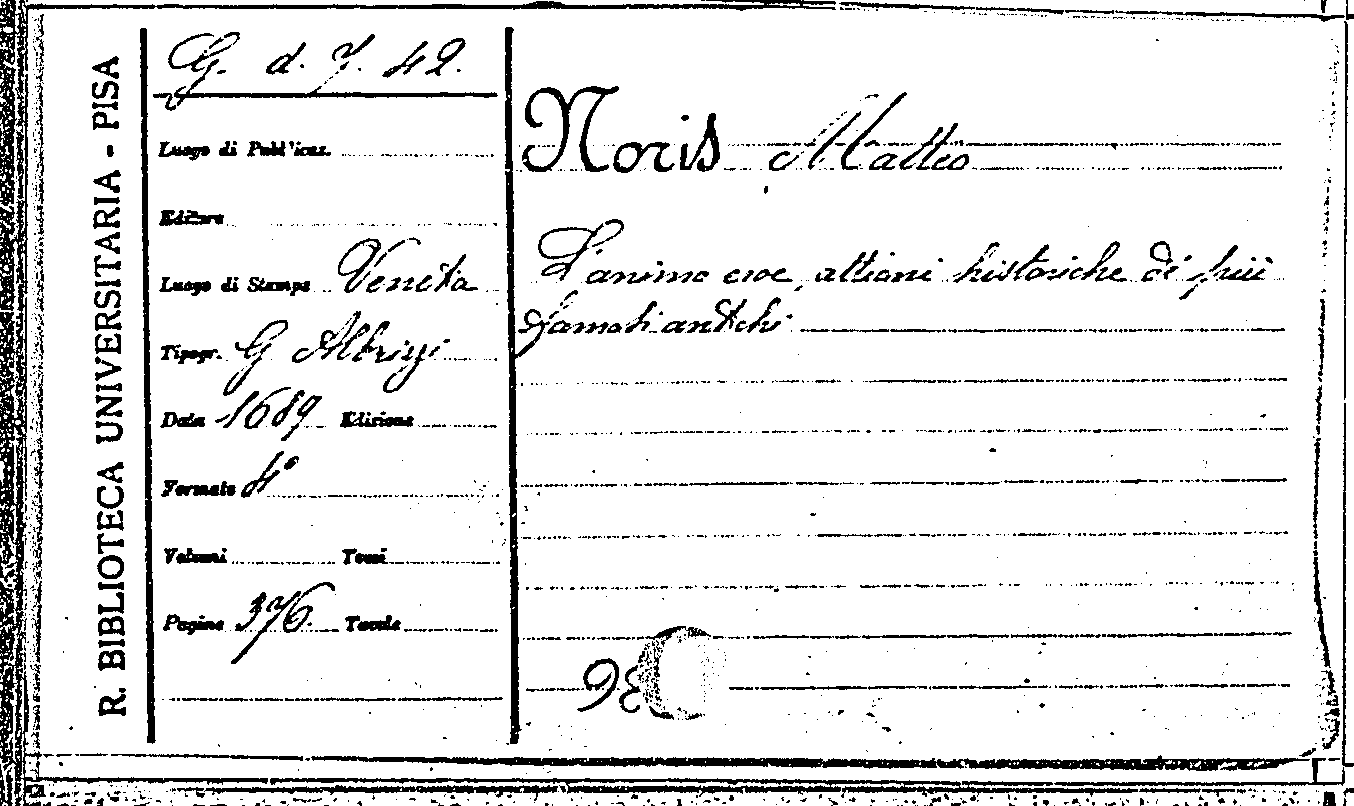 R. BIBLIOTECA UNIVERSITARIA - PISA
G. d. 7. 42.
Luogo di Pubblicaz.
Editore
Luogo di Stampa Venetia
Tipogr. G Albrizzi
Data 1689 Edizione
Formato 4°
Volumi Tomi
Pagine 376. Tavole
Noris Matteo
L'animo eroe, attioni historiche di più
famosi antichi